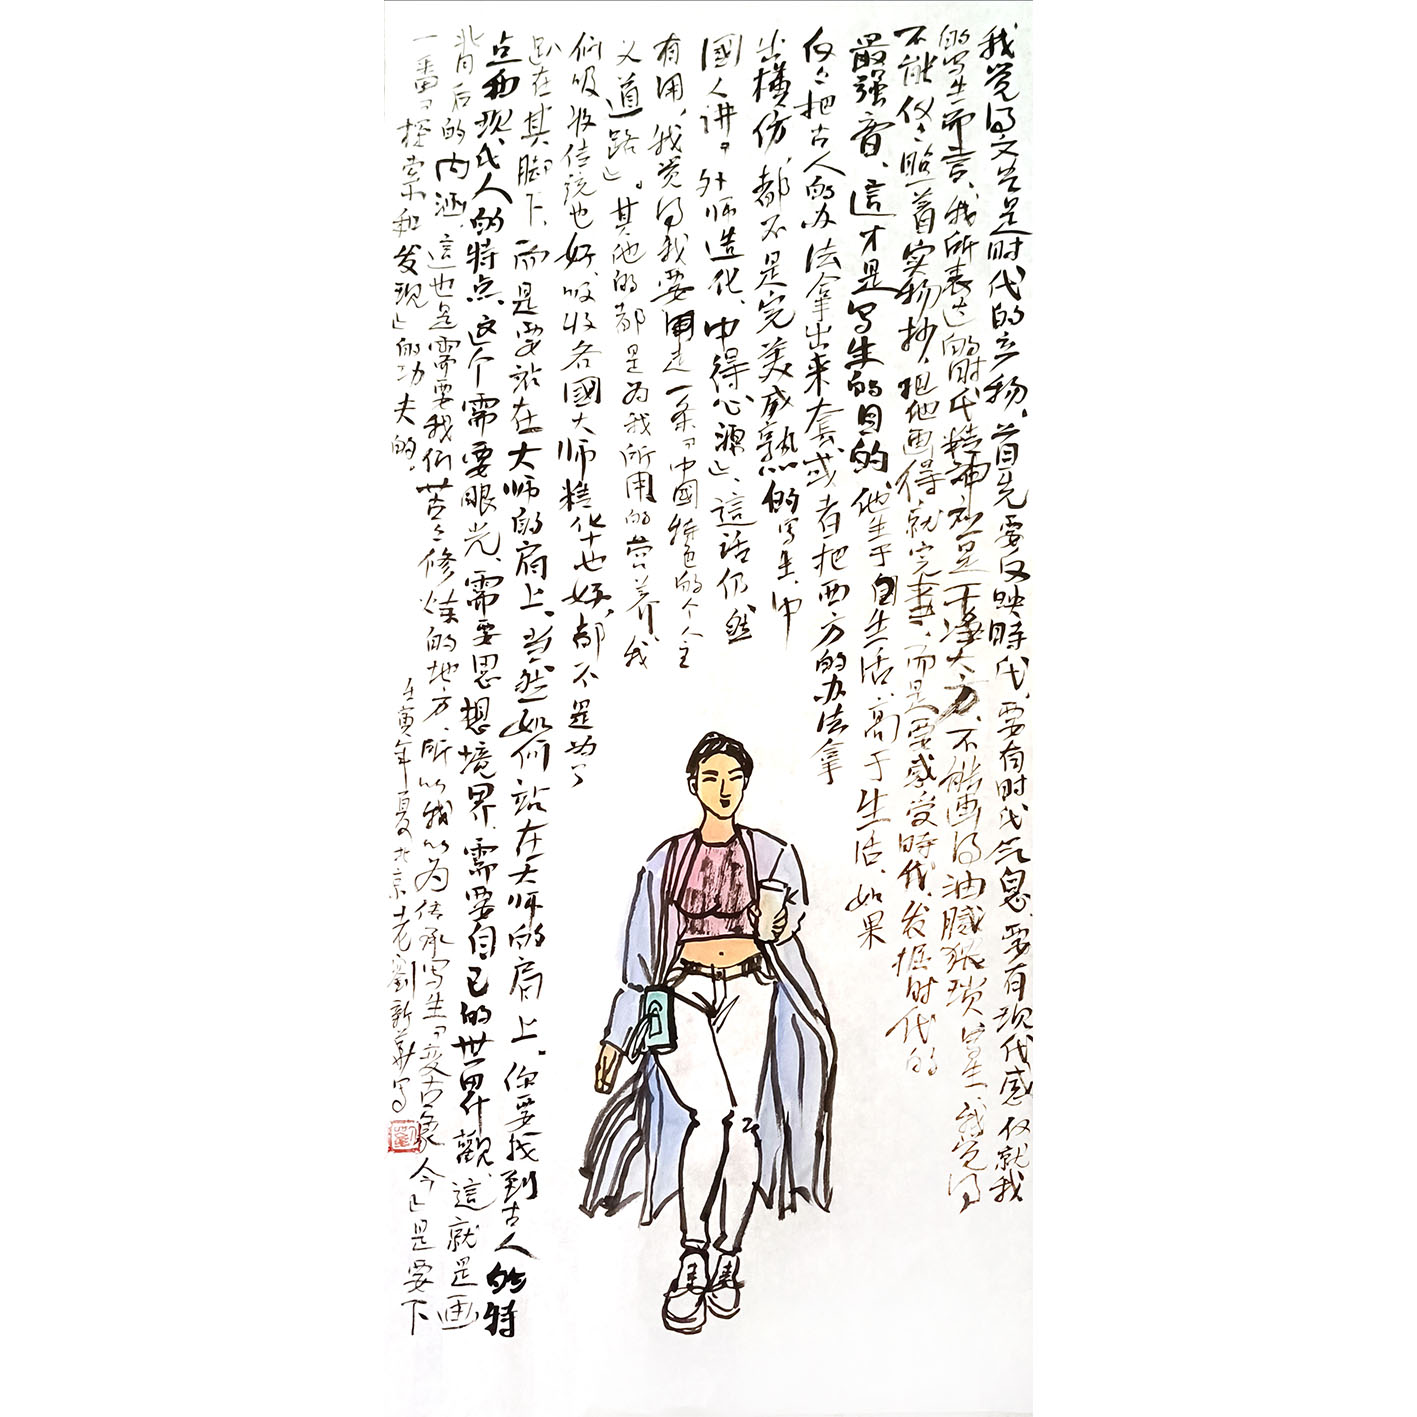 我觉得文艺是时代的产物，首先要反映時代，要有时代气息，要有现代感，仅就我
的写生而言，我所表达的时代精神应是干净大方，不能画得油腻猥琐，写生，我觉得
不能仅仅照着实物抄，把他画得就完事，而是要感受時代，发掘时代的
最强音，這才是写生的目的，他生于自生活，高于生活，如果
仅仅把古人的办法拿出来套或者把西方的办法拿
出橫仿，都不是完美成熟的写生，中
國人讲「外师造化，中得心源」，這话仍然
有用，我觉得我要用走一条「中國特色的个人主
义道路」。其他的都是为我所用的营养，我
们吸收传统也好，吸收各國大师精华也好，都不是为了
趴在其脚下，而是要站在大师的肩上。当然如何站在大师的肩上，你要找到古人的特
点和现代人的特点，这个需要眼光，需要思想境界，需要自己的世界觀，這就是画
背后的内涵，這也是需要我们苦苦修炼的地方，所以我以为传承写生「变古为今」是要下
一番「探索和发现」的功夫的，
壬寅年夏北京老劉新華写